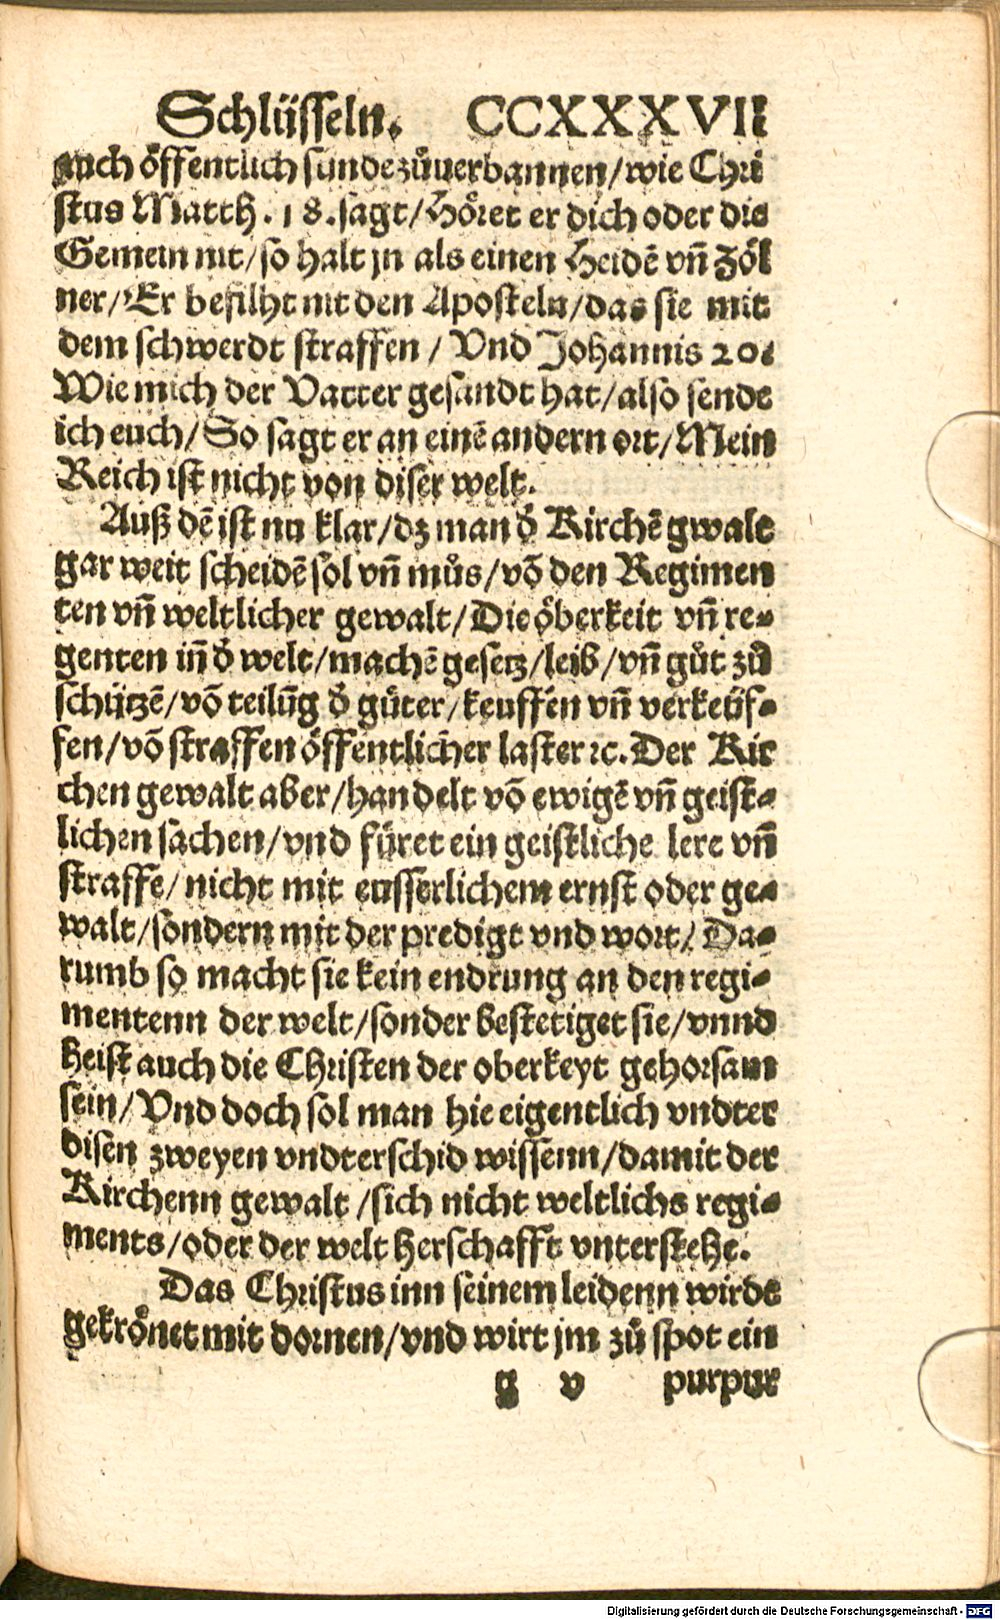 Schlüsseln. CCXXXVII
auch öffentlich sunde zůuerbannen/wie Chri
stus Matth. 18. sagt/Höret er dich oder die
Gemein nit/so halt jn als einen Heidē vñ Zöl
ner/Er befilht nit den Aposteln/das sie mit
dem schwerdt straffen/ Vnd Johannis 20.
Wie mich der Vatter gesandt hat/also sende
ich euch/So sagt er an einē andern ort/Mein
Reich ist nicht von diser welt.
Auß dē ist nu klar/dz man d̄ Kirchē gwalt
gar weit scheidē sol vñ můs/vō den Regimen
ten vñ weltlicher gewalt/Die öberkeit vñ re-
genten iñ d̄ welt/machē gesetz/leib/vñ gůt zů
schützē/vō teilūg d̄ güter/keuffen vñ verkeüf-
fen/vō straffen öffentlicher laster ꝛc. Der Kir
chen gewalt aber/handelt vō ewigē vñ geist-
lichen sachen/vnd füret ein geistliche lere vñ
straffe/nicht mit eusserlichem ernst oder ge-
walt/sondern mit der predigt vnd wort/ Da-
rumb so macht sie kein endrung an den regi-
mentenn der welt/sonder bestetiget sie/vnnd
heist auch die Christen der oberkeyt gehorsam
sein/Vnd doch sol man hie eigentlich vndter
disen zweyen vndterschid wissenn/damit der
Kirchenn gewalt/sich nicht weltlichs regi-
ments/oder der welt herschafft vnterstehe.
Das Christus inn seinem leidenn wirde
gekrönet mit dornen/vnd wirt jm zů spot ein
g v purpur
Digitalisierung gefördert durch die Deutsche Forschungsgemeinschaft - DFG